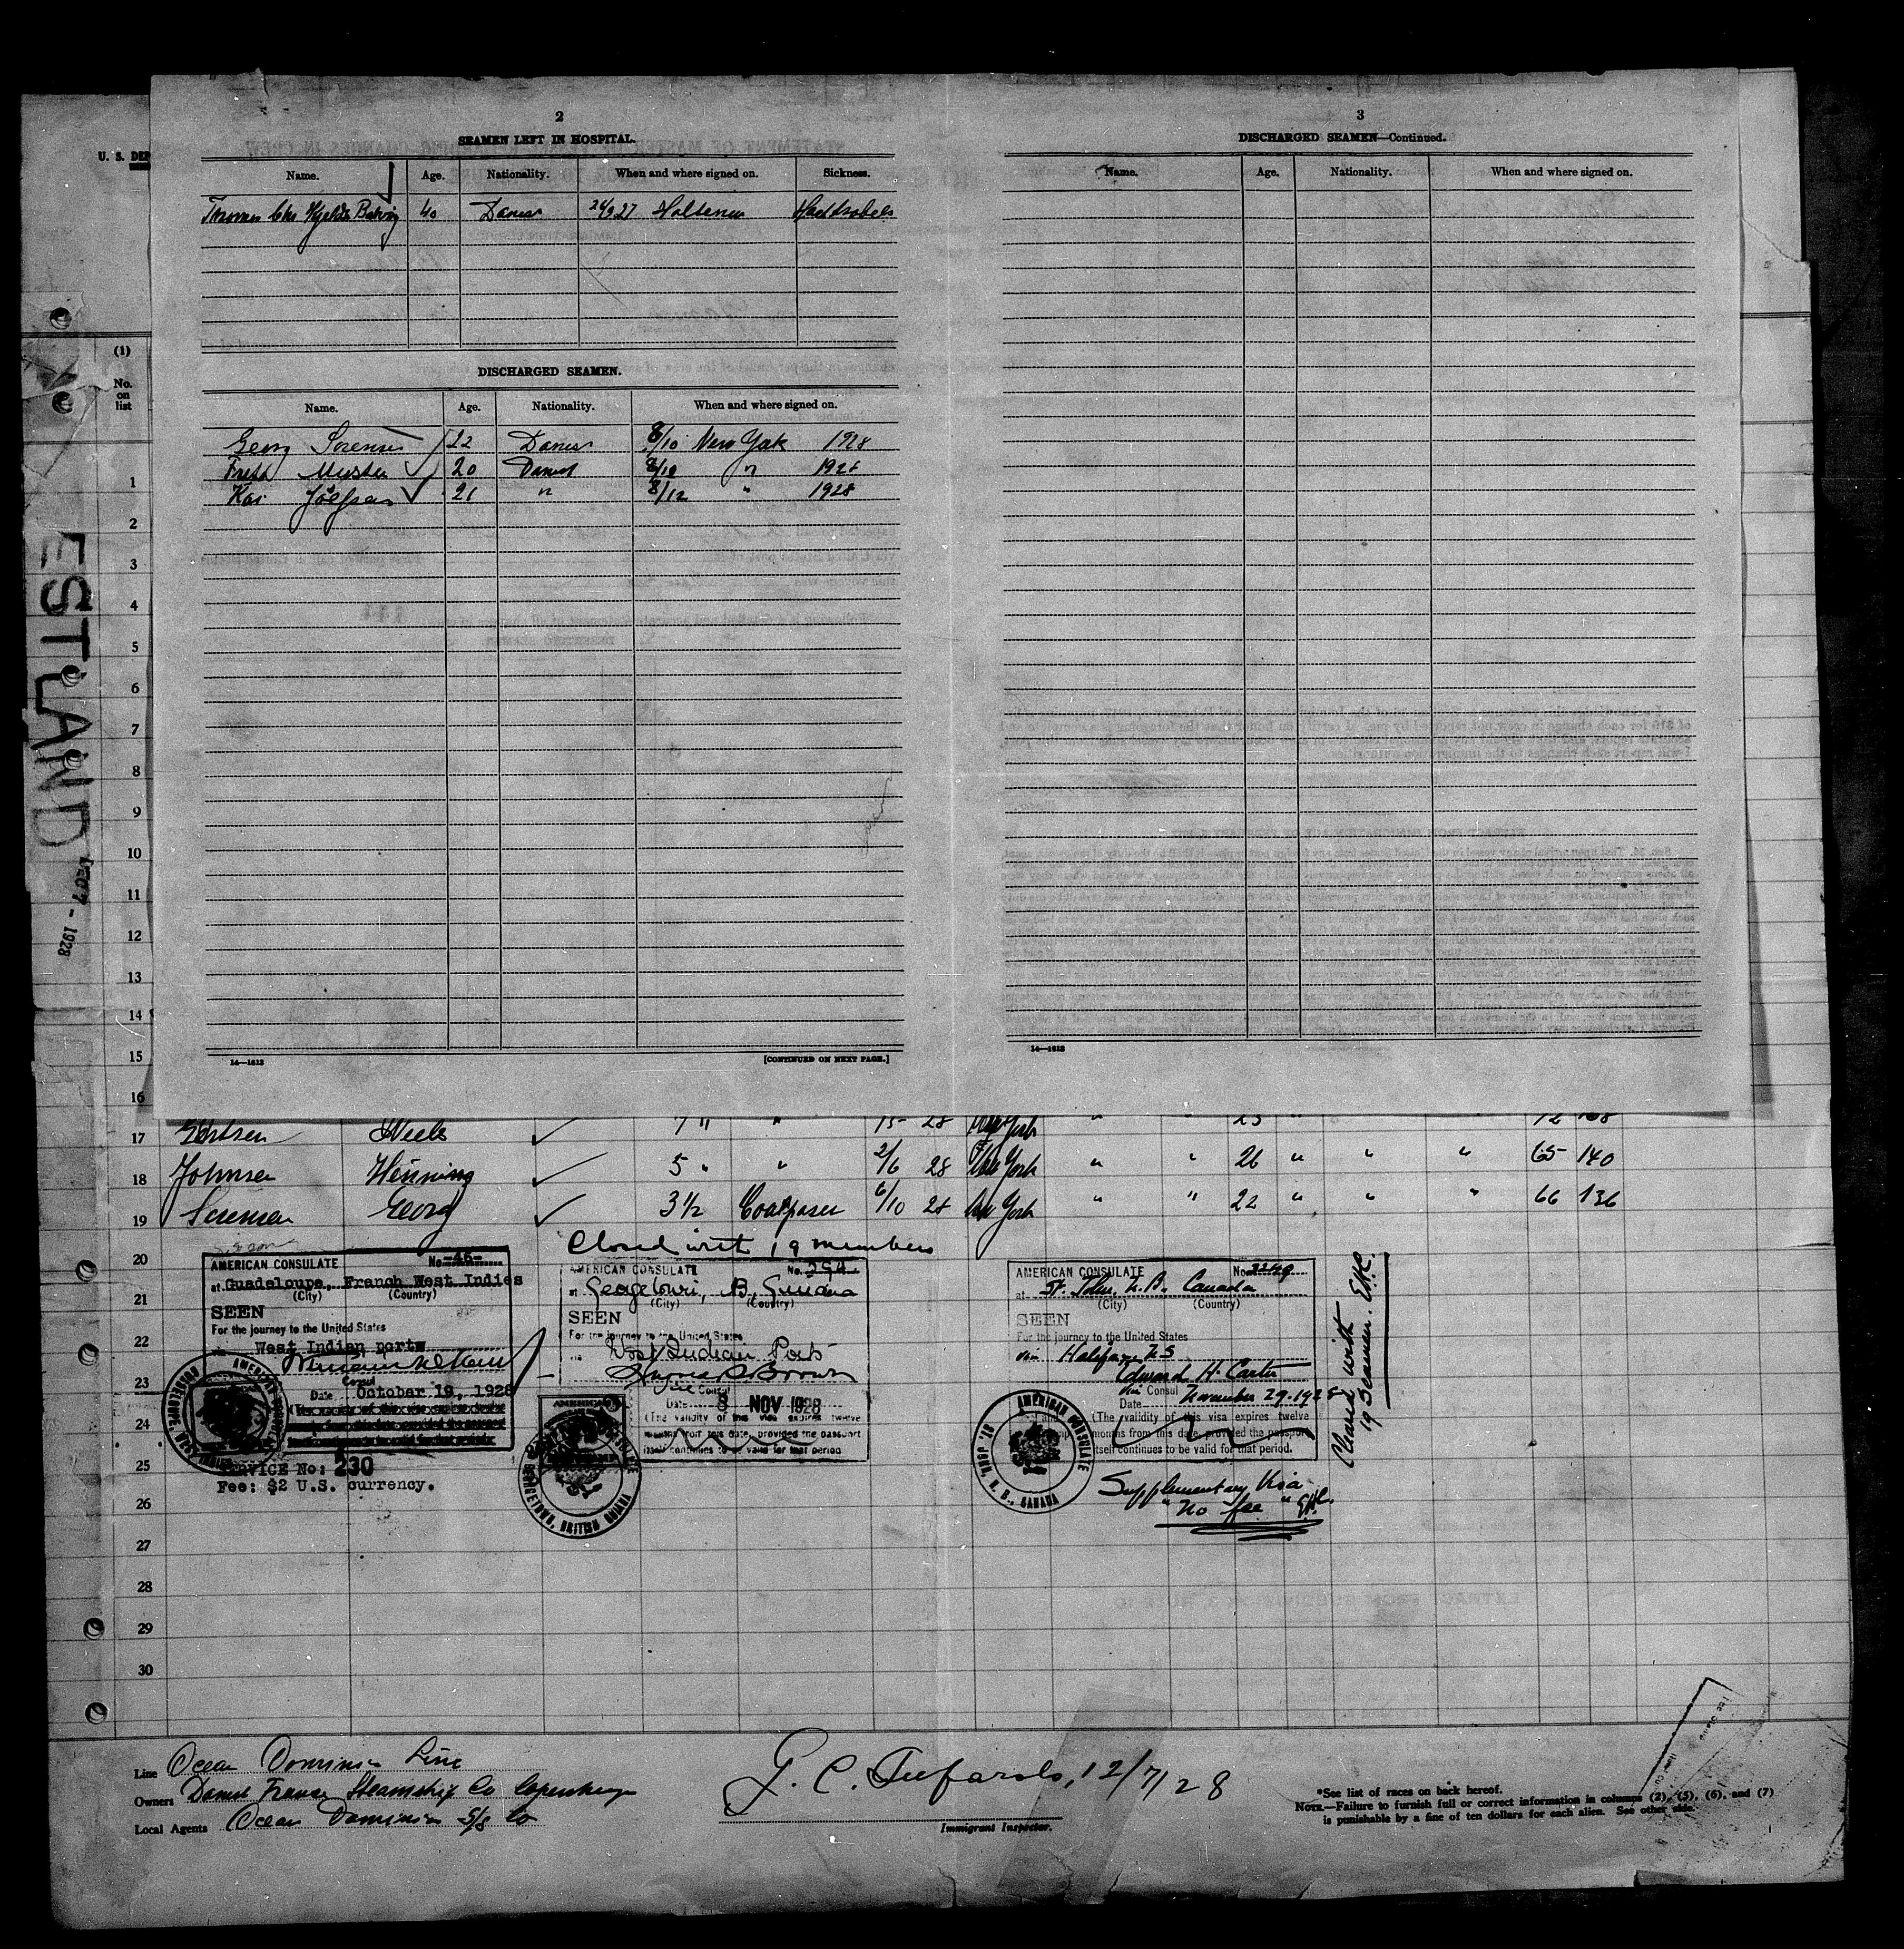 2
SEAMEN LEFT IN HOSPITAL.
Name. Age. Nationality. When and where signed on. Sickness.
40 Danes 24/9 27
DISCHARGED SEAMEN.
Name. Age. Nationality. When and where signed on.
Georg Sorensen 22 Danes 8/10 New York 1928
20 Danes 8/10 " 1928
Kai 21 " 8/12 " 1928
14—1613
[CONTINUED ON NEXT PAGE.]
3
DISCHARGED SEAMEN—Continued.
Name. Age. Nationality. When and where signed on.
14—1613
U. S. DEP
(1)
No.
on
list
ESTLAND
DEC 7 - 1928
1
2
3
4
5
6
7
8
9
10
11
12
13
14
15
16
17 Niels 7 " " 15- 28 New York " " 25 " 72 168
18 Johnsen Henning 5 " " 2/6 28 New York " " 26 " " " 65 140
19 Sorensen Georg 3½ Coalpasser 6/10 28 New York " " 22 " " " 66 136
20
21
22
23
24
25
26
27
28
29
30
Closed with 19 members
AMERICAN CONSULATE No. -46-
at Guadeloupe, French West Indies
(City) (Country)
SEEN
For the journey to the United States
West Indian ports
Consul
Date October 19, 1928
SERVICE No: 230
Fee: $2 U.S. currency.
AMERICAN CONSULATE No. 294
at Georgetown, B. Guiana
(City) (Country)
SEEN
For the journey to the United States
via West Indian Ports
Vice Consul
Date 8 NOV 1928
(The validity of this visa expires twelve
months from this date, provided the passport
itself continues to be valid for that period
AMERICAN CONSULATE
GEORGETOWN, BRITISH GUIANA
AMERICAN CONSULATE No. 2249
at St. John, N.B. Canada
(City) (Country)
SEEN
For the journey to the United States
via Halifax N S
Edward H. Carter
Vice Consul
Date November 29. 1928
(The validity of this visa expires twelve
months from this date, provided the passport
itself continues to be valid for that period.
AMERICAN CONSULATE
ST. JOHN, N. B., CANADA
Supplementary Visa
"No fee" EHC.
Cleared with
19 Seamen. EHC.
Line Ocean Dominion Line
Owners Steamship Co Copenhagen
Local Agents Ocean Dominion S/S Co
12/7/28
Immigrant Inspector.
*See list of races on back hereof.
NOTE.—Failure to furnish full or correct information in columns (2), (5), (6), and (7)
is punishable by a fine of ten dollars for each alien. See other side.